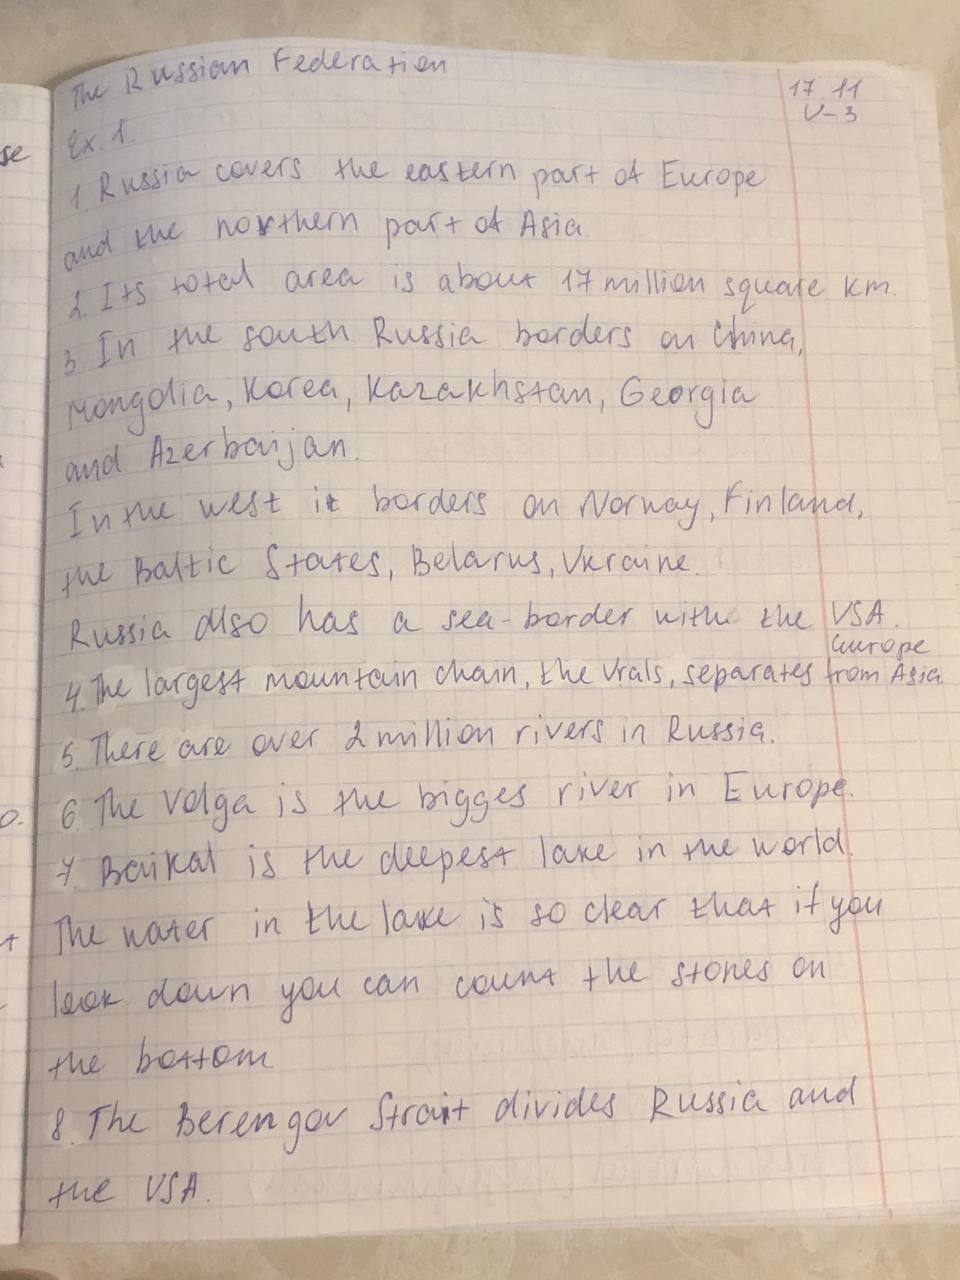 The Russian Federation
17 11
V-3
Ex. 1.
1. Russia covers the eastern part of Europe
and the northern part of Asia.
2. Its total area is about 17 million square km.
3. In the south Russia borders on China,
Mongolia, Korea, Kazakhstan, Georgia
and Azerbaijan.
In the west it borders on Norway, Finland,
the Baltic States, Belarus, Ukraine.
Russia also has a sea-border with the USA.
Europe
4. The largest mountain chain, the Urals, separates from Asia
5. There are over 2 million rivers in Russia.
6. The Volga is the bigges river in Europe.
7. Baikal is the deepest lake in the world.
The water in the lake is so clear that if you
look down you can count the stones on
the bottom
8. The Berengov Strait divides Russia and
the USA.
se
o.
t